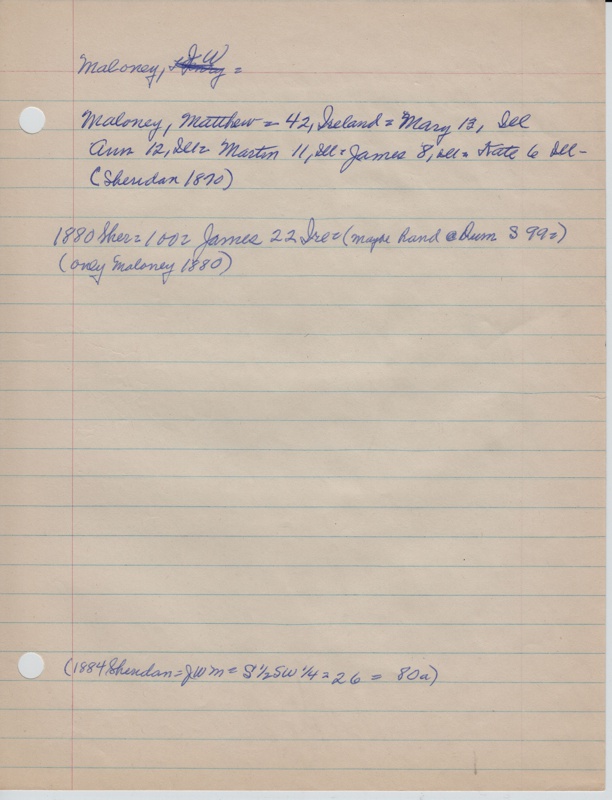 Maloney, J W =
Maloney, Matthew = 42, Ireland = Mary 13, Ill
Ann 12, Ill = Martin 11, Ill = James 8, Ill = Kate 6 Ill -
(Sheridan 1870)
1880 Sher = 100 = James 22 Ire = (maybe Rand @ S 99 =)
(only Maloney 1880)
(1884 Sheridan = JWM = S 1/2 SW 1/4 = 26 = 80a)